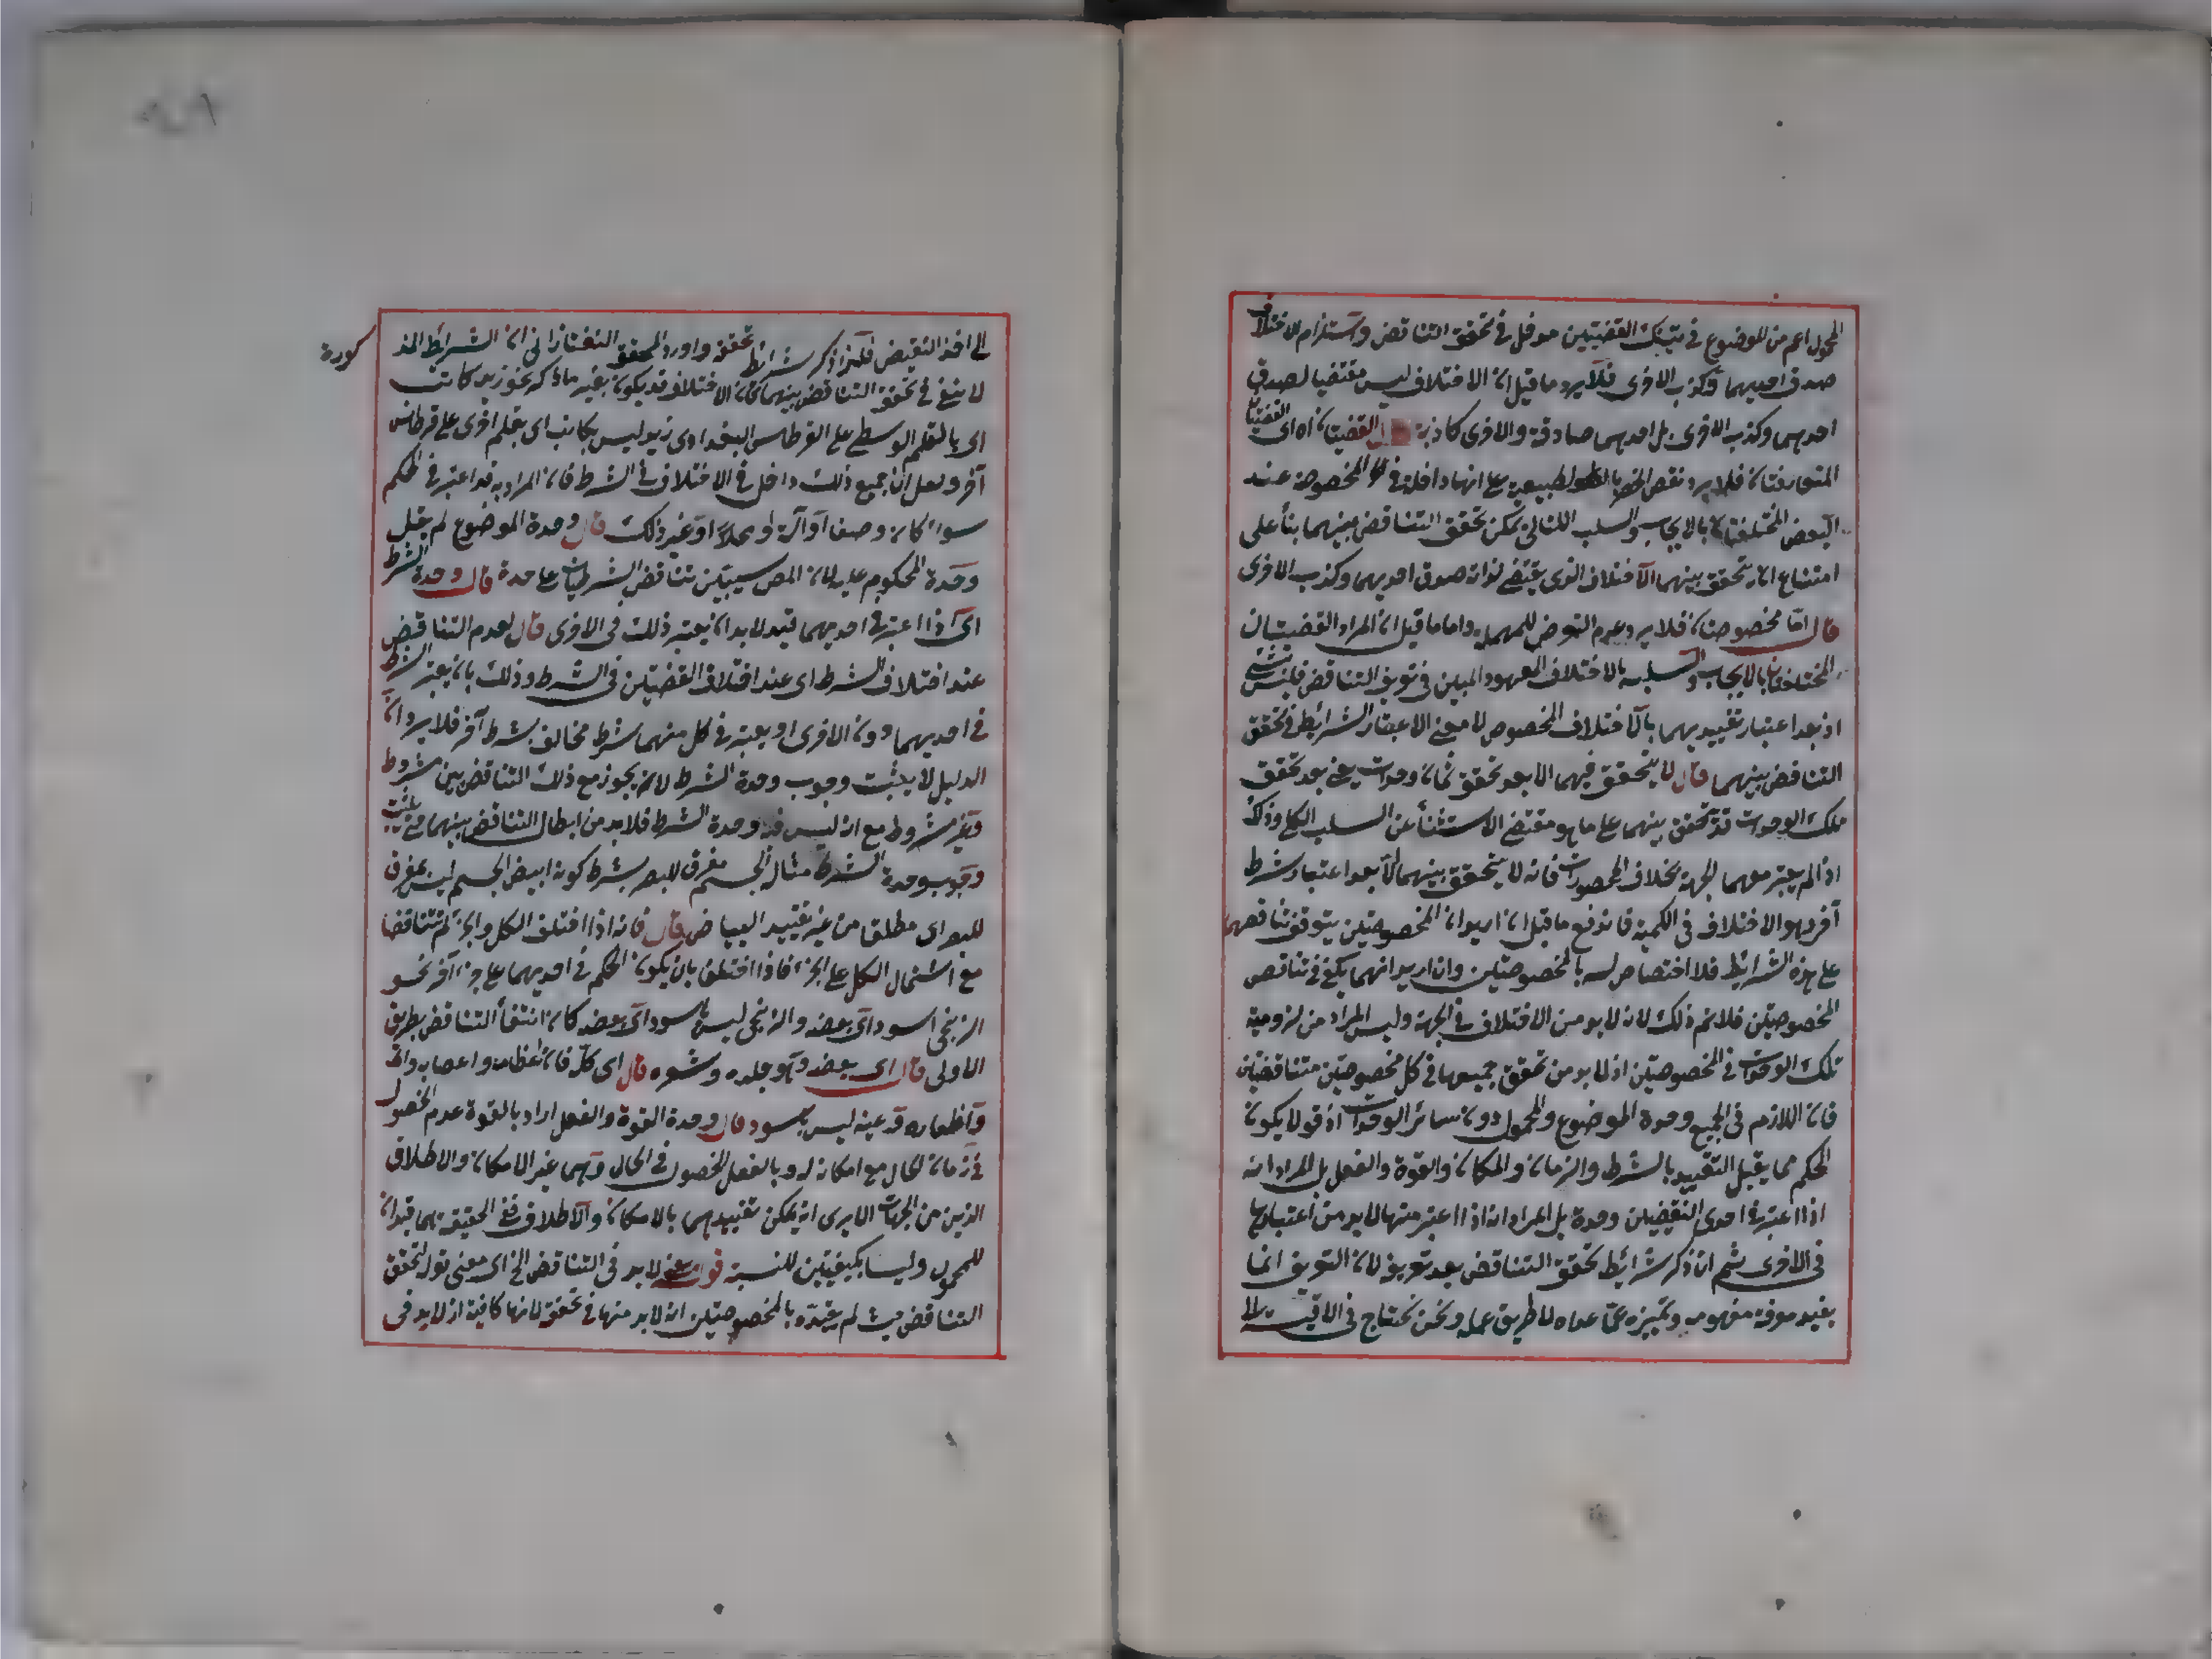 المحمول اعم من الموضوع في تينك القضيتين مدخل في تحقق التناقض واستلزام الاختلاف
صدق احديهما وكذب الاخرى فلا يرد ما قيل ان الاختلاف ليس مقتضيا لصدق
احديهما وكذب الاخرى بل احديهما صادقة والاخرى كاذبة القضيتان اه اى القضيتان
المتعارفتان فلا يرد نقض الحصر بالطبيعية على انها داخلة في المخصوصة عند
البعض المختلفتان بالايجاب والسلب اللتان يمكن تحقق التناقض بينهما بناء على
امتناع ان يتحقق بينهما الاختلاف الذى يقتضى لذاته صدق احديهما وكذب الاخرى
قال اما مخصوصتان فلا يرد عدم التعرض للمهملة واما ما قيل ان المراد القضيتان
المختلفتان بالايجاب والسلب بالاختلاف المعهود المبين في تعريف التناقض فليس بشئ
اذ بعد اعتبار تقييديهما بالاختلاف المخصوص لا معنى لاعتبار الشرائط في تحقق
التناقض بينهما قال لا يتحقق فيهما الا بعد تحقق ثمان وحدات يعنى بعد تحقق
تلك الوحدات قد يتحقق بينهما على ما هو مقتضى الاستثناء عن السلب الكلى وذلك
اذا لم يعتبر معهما الجهة بخلاف المحصورات فانه لا يتحقق بينهما الا بعد اعتبار شرط
آخر وهو الاختلاف في الكمية فاندفع ما قيل ان اريد ان المخصوصتين يتوقف تناقضهما
على هذه الشرائط فلا اختصاص له بالمخصوصتين وان اريد انهما يكفى في تناقض
المخصوصتين فلا نم ذلك لانه لا بد من الاختلاف في الجهة وليس المراد من لزومية
تلك الوحدات في المخصوصتين انه لا بد من تحقق جميعها في كل مخصوصتين متناقضتين
فان اللازم في الجميع وحدة الموضوع والمحمول دون سائر الوحدات اذ قد لا يكون
الحكم مما يقبل التقييد بالشرط والزمان والمكان والقوة والفعل بل المراد انه
اذا اعتبر في احدى النقيضين وحدة بل المراد انه اذا اعتبر منها لا بد من اعتبارها
في الاخرى ثم انه ذكر شرائط تحقق التناقض بعد تعريفه لان التعريف انما
يفيد معرفة مفهومه وتميزه عما عداه لا طريق عمله ونحن نحتاج في الاقيسة الى
الى اخذ النقيض فلهذا ذكر شرائط تحقق واورد المحقق التفتازانى ان الشرائط المذكورة
لا تكفى في تحقق التناقض بينهما لان الاختلاف قد يكون بغير ما ذكر نحو زيد كاتب
اى بالقلم الواسطى على القرطاس البغدادى زيد ليس بكاتب اى بقلم اخرى على قرطاس
آخر ولعل ان جميع ذلك داخل في الاختلاف في الشرط فان المراد به قد اعتبر في الحكم
سواء كان وصفا او آلة او محلا او غير ذلك قال وحدة الموضوع لم يقل
وحدة المحكوم عليه لان المص سيبين تناقض الشرطيات على حدة قال وحدة الشرط
اى اذا اعتبر في احديهما قيد لا بد ان يعتبر ذلك في الاخرى قال لعدم التناقض
عند اختلاف الشرط اى عند اختلاف القضيتين في الشرط وذلك بان يعتبر الشرط
في احديهما دون الاخرى او يعتبر في كل منهما شرط مخالف بشرط آخر فلا يرد ان
الدليل لا يثبت وجوب وحدة الشرط لانه يجوز مع ذلك التناقض بين مشروط
وغير مشروط مع انه ليس فيه وحدة الشرط فلا بد من ابطال التناقض بينهما حتى يثبت
وجوب وحدة الشرط مثاله الجسم مفرق للبصر بشرط كونه ابيض الجسم ليس بمفرق
للبصر اى مطلقا من غير تقييد البياض قال فانه اذا اختلف الكل والجزء لم تتناقضا
مع اشتمال الكل على الجزء فاذا اختلفتا بان يكون الحكم في احديهما على جزء آخر نحو
الزنجى اسود اى بعضه والزنجى ليس باسود اى بعضه كان انتفاء التناقض بطريق
الاولى قال اى بعضه وهو جلده وشعره قال اى كله فان عظامه واعصابه
واظفاره ليس باسود قال وحدة القوة والفعل اراد بالقوة عدم الحصول
في زمان الحال مع امكانه له وبالفعل الحصول في الحال وهما غير الامكان والاطلاق
الذين من الجهات الا يرى انه يمكن تقييدهما بالامكان والاطلاق ففى الحقيقة هما قيدان
للمحمول وليسا بكيفيتين للنسبة قوله معنى لا بد في التناقض الخ اى معنى قوله تحقق
التناقض حيث لم يقيده بالمخصوصتين انه لا بد منها في تحققه لا انها كافية اذ لا بد في